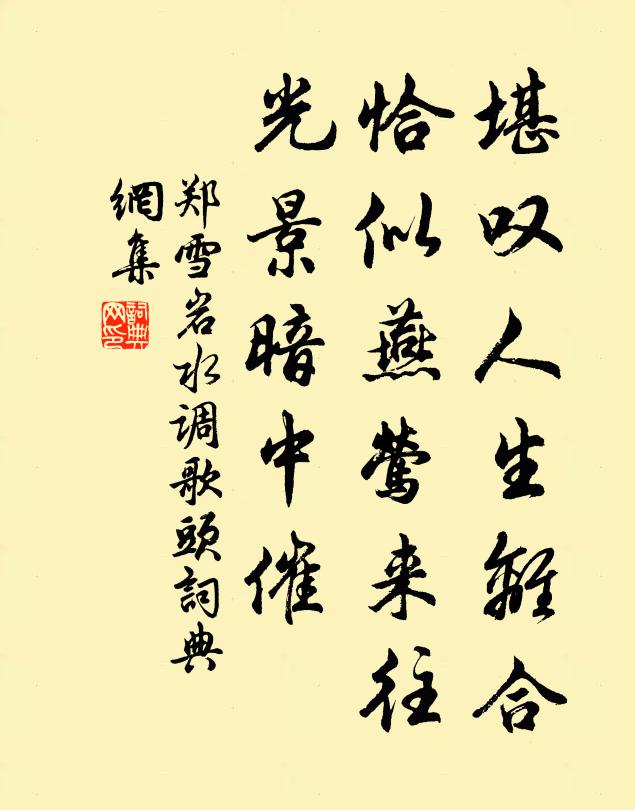 堪叹人生離合
恰似燕莺来往
光景暗中催
郑雪岩水调歌頭詞典
網集
詞典
网印